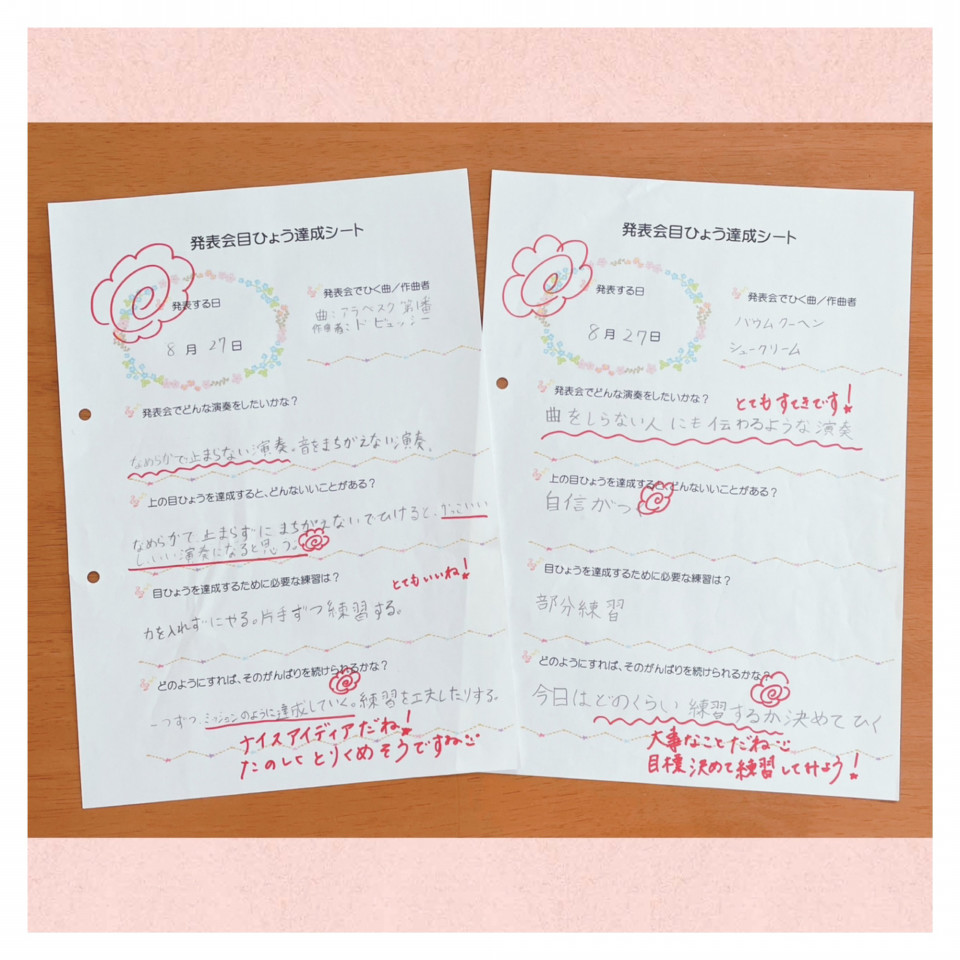 発表会目ひょう達成シート
発表する日
8月27日
発表会でひく曲/作曲者
曲:アラベスク第1番
作曲者:ドビュッシー
発表会でどんな演奏をしたいかな?
なめらかで止まらない演奏。音をまちがえない演奏。
上の目ひょうを達成すると、どんないいことがある?
なめらかで止まらずにまちがえないでひけると、かっこいい
し、いい演奏になると思う。
目ひょうを達成するために必要な練習は?
とてもいいね!
力を入れずにやる。片手ずつ練習する。
どのようにすれば、そのがんばりを続けられるかな?
一つずつ、ミッションのように達成していく。練習を工夫したりする。
ナイスアイディアだね!
たのしくとりくめそうですね
発表会目ひょう達成シート
発表する日
8月27日
発表会でひく曲/作曲者
バウムクーヘン
シュークリーム
発表会でどんな演奏をしたいかな?
とてもすてきです!
曲をしらない人にも伝わるような演奏
上の目ひょうを達成すると、どんないいことがある?
自信がつく
目ひょうを達成するために必要な練習は?
部分練習
どのようにすれば、そのがんばりを続けられるかな?
今日はどのくらい練習するか決めてひく
大事なことだね
目標決めて練習してけよう!